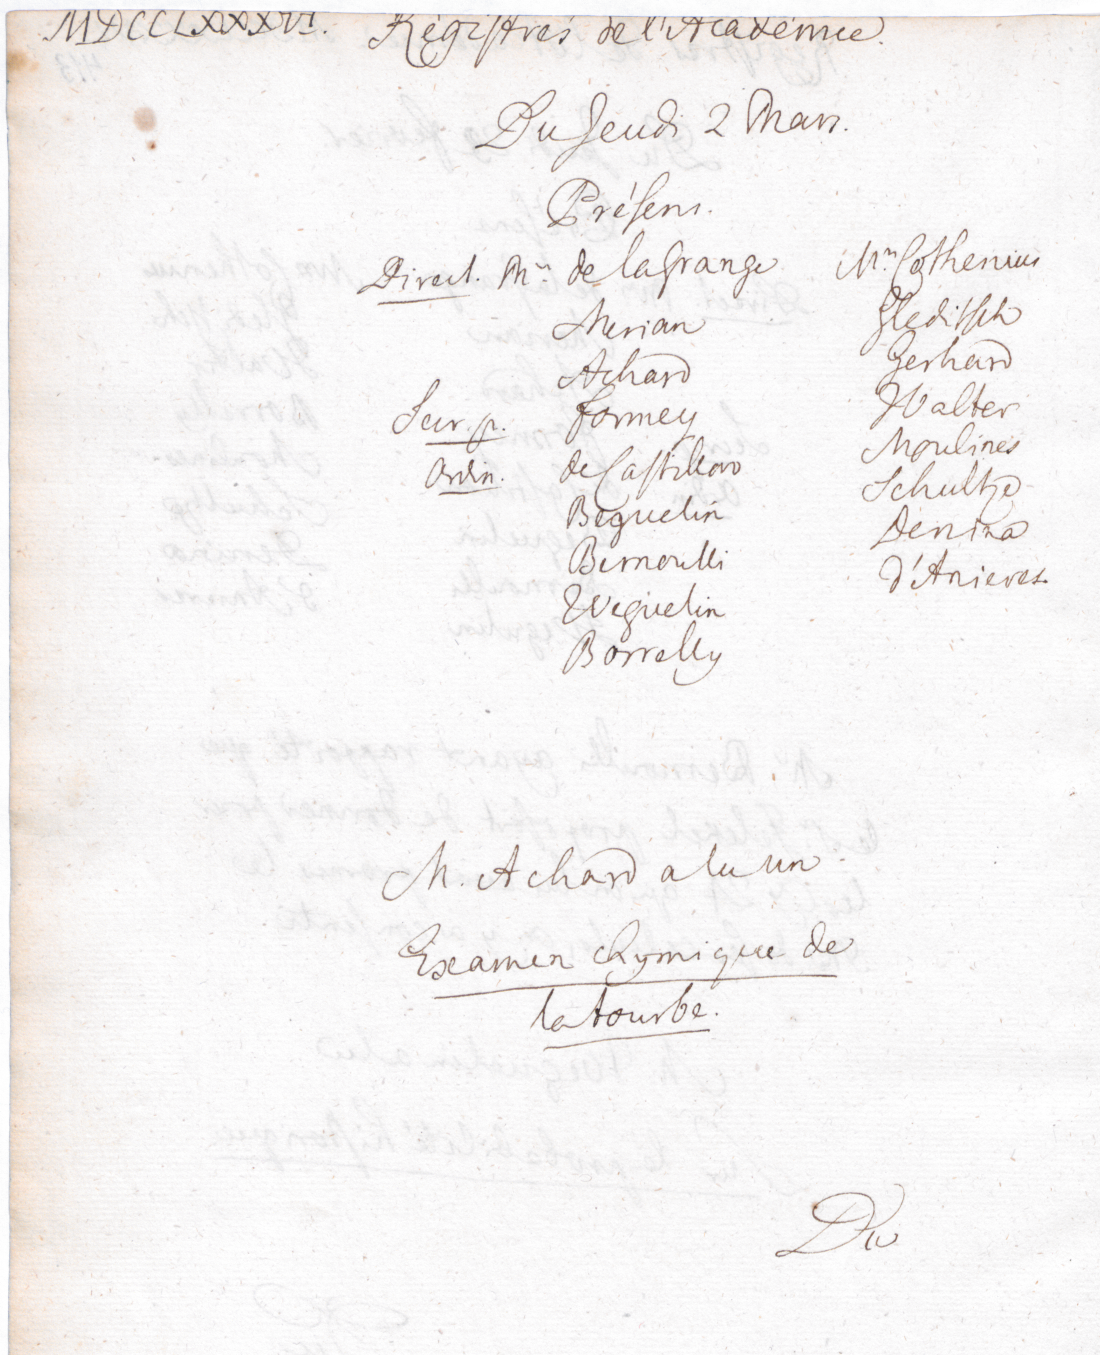 MDCCLXXXVI. Régistres de l'Académie.
Du Jeudi 2 Mars.
Présens.
Direct. Mrs de la Grange
Merian
Achard
Secr. p. Formey
Ordin. de Castillon
Beguelin
Bernoulli
Weguelin
Borrelly
Mrs Cothenius
Gleditsch
Gerhard
Walter
Moulines
Schultze
Denina
d'Anieres
M. Achard a lu un
Examen chymique de
la tourbe.
Du